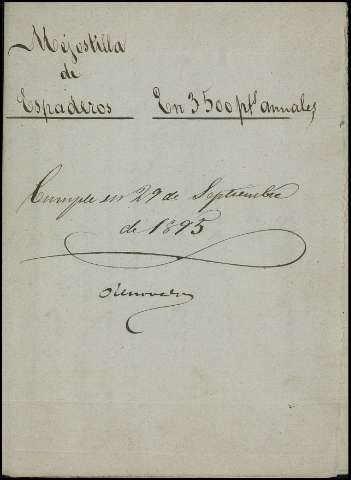 Mijostilla
de
Espaderos En 3500 pts annales
Cumple en 29 de Septiembre
de 1895
Renovada